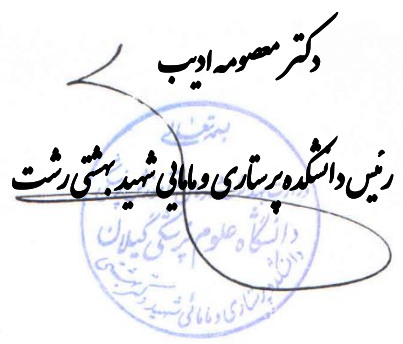 دکتر معصومه ادیب
رئیس دانشکده پرستاری و مامایی شهید بهشتی رشت
بسمه تعالی
دانشگاه علوم پزشکی گیلان
دانشکده پرستاری و مامائی شهید دکتر بهشتی